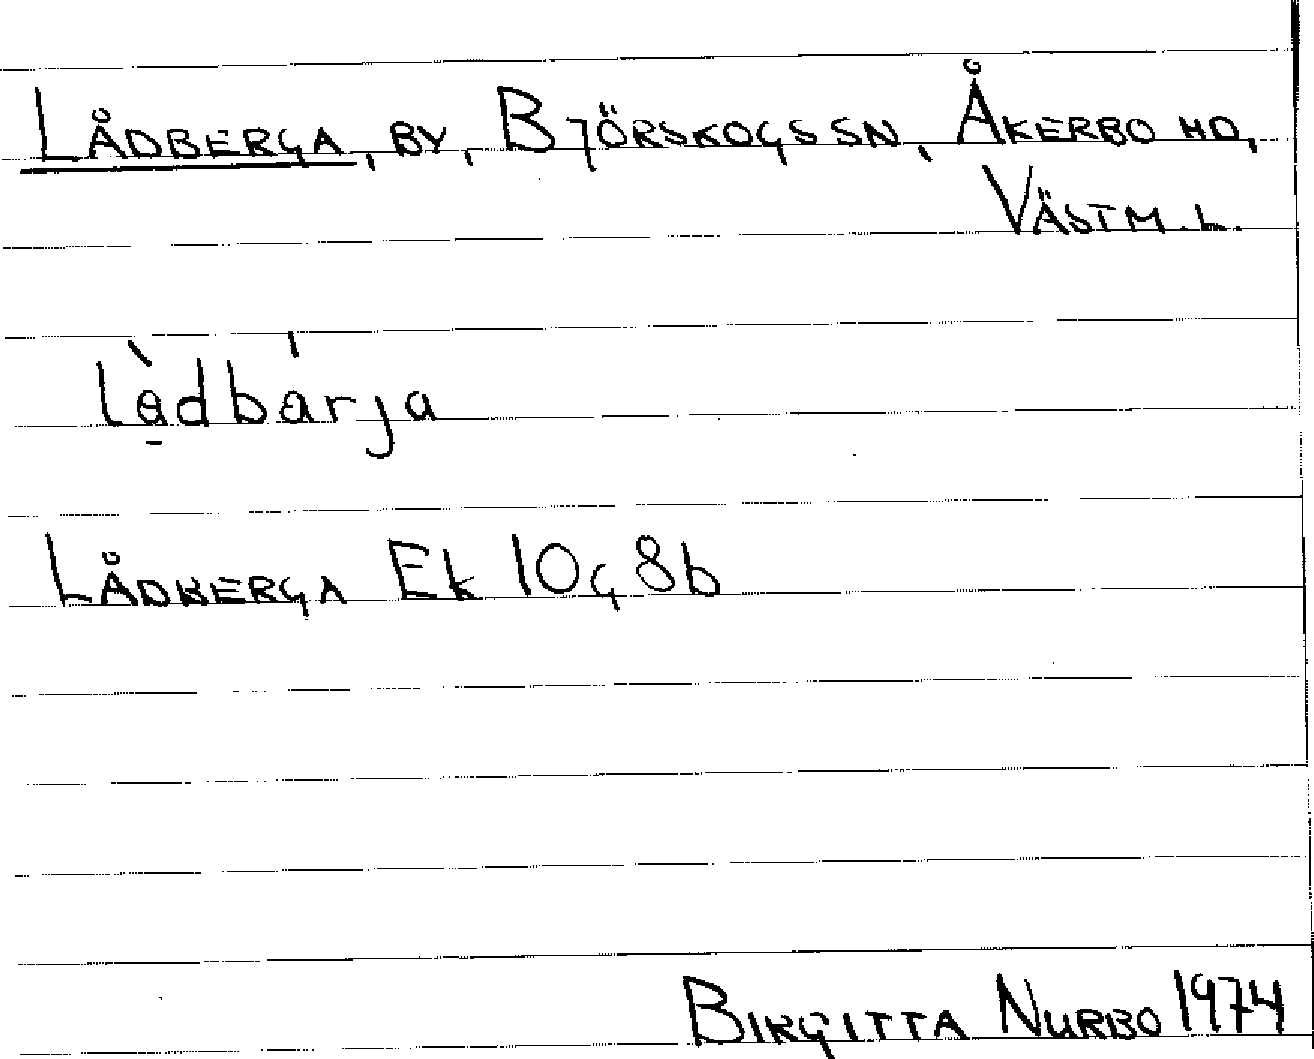 LÅDBERGA, BY, BJÖRSKOGS SN, ÅKERBO HD,
VÄSTM. L.
lå̀dbárja
LÅDBERGA Ek 10g 8b
BIRGITTA NURBO 1974